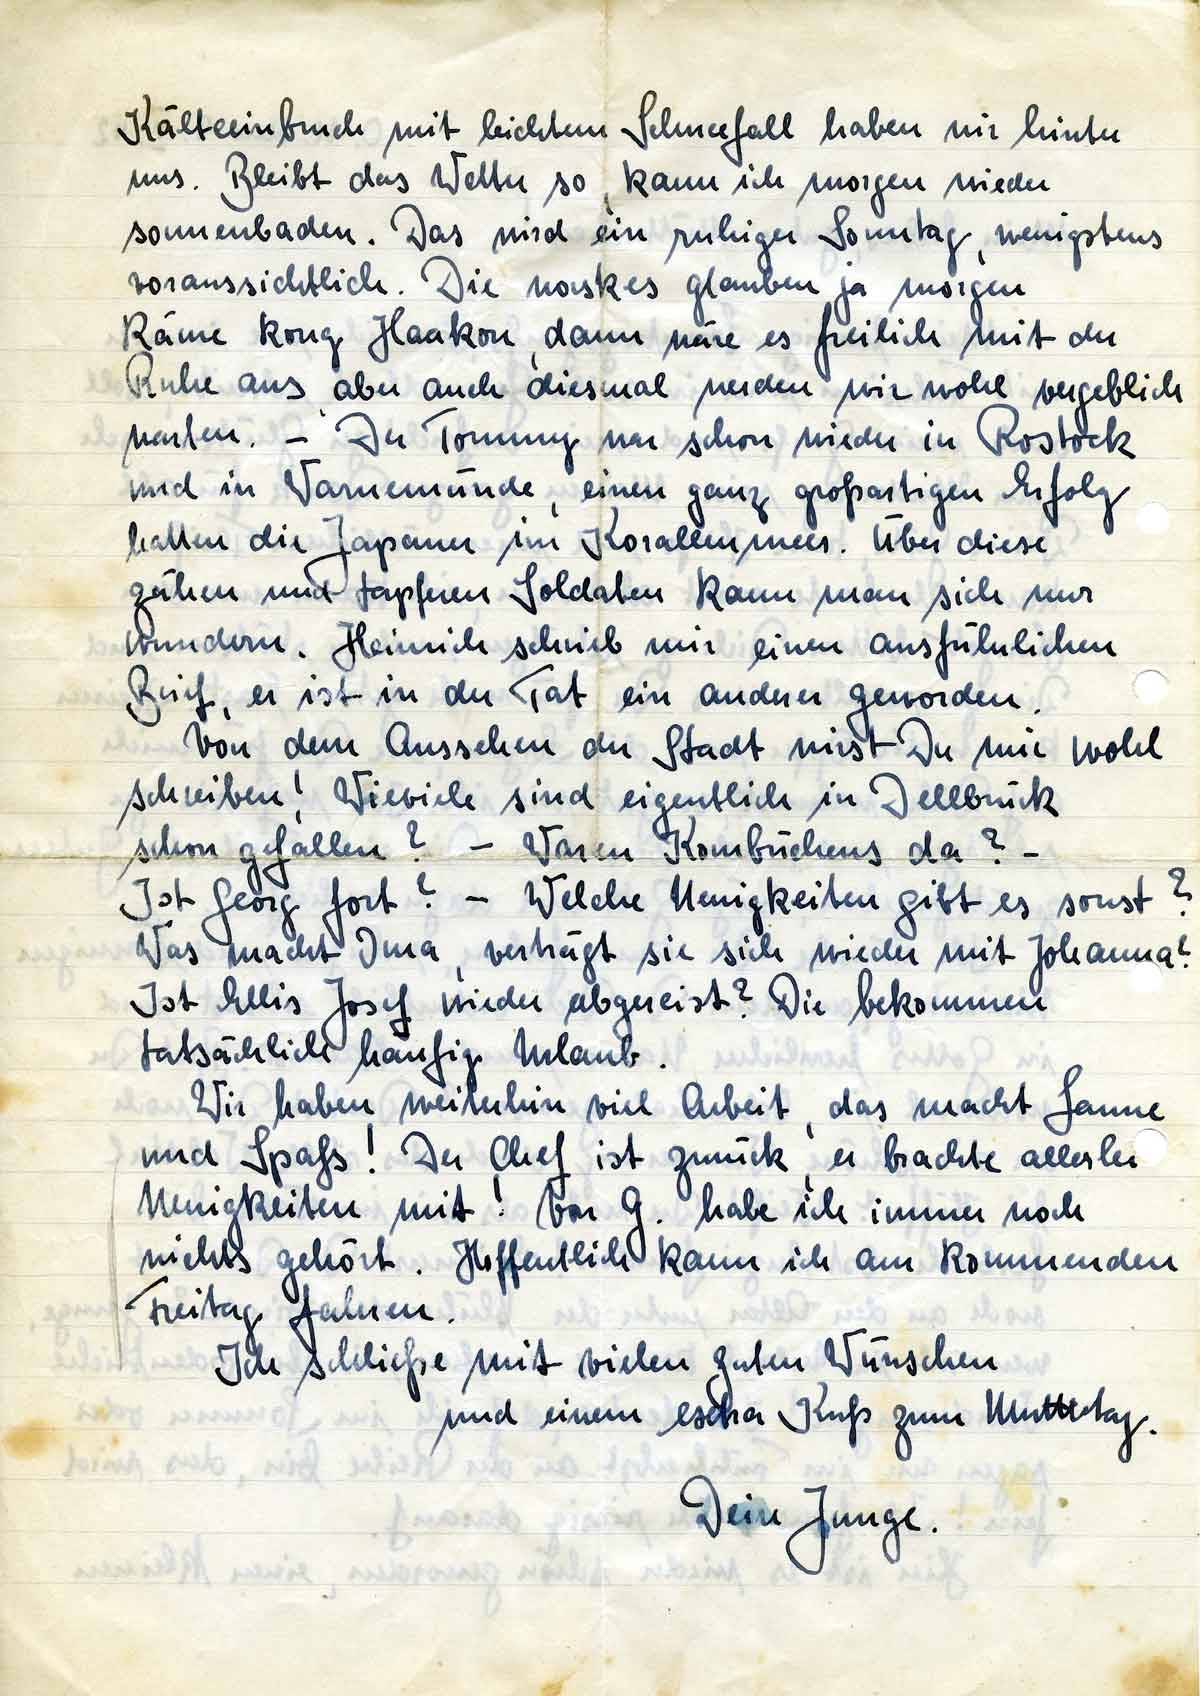 Kälteeinbruch mit leichtem Schneefall haben wir hinter
uns. Bleibt das Wetter so, kann ich morgen wieder
sonnenbaden. Das wird ein ruhiger Sonntag, wenigstens
voraussichtlich. Die norkes glauben ja morgen
käme kong Haakon, dann wäre es freilich mit der
Ruhe aus, aber auch diesmal werden wir wohl vergeblich
warten. – Der Tommy war schon wieder in Rostock
und in Warnemünde, einen ganz großartigen Erfolg
hatten die Japaner im Korallenmeer. Über diese
zähen und tapferen Soldaten kann man sich nur
wundern. Heinrich schrieb mir einen ausführlichen
Brief, er ist in der Tat ein anderer geworden.
Von dem Aussehen der Stadt wirst Du mir wohl
schreiben! Wieviele sind eigentlich in Dellbrück
schon gefallen? – Waren Kombüchens da? –
Ist Georg fort? – Welche Neuigkeiten gibt es sonst?
Was macht Irma, verträgt sie sich wieder mit Johanna?
Ist Ellis Josef wieder abgereist? Die bekommen
tatsächlich häufig Urlaub.
Wir haben weiterhin viel Arbeit, das macht Laune
und Spaß! Der Chef ist zurück, er brachte allerlei
Neuigkeiten mit! Von G. habe ich immer noch
nichts gehört. Hoffentlich kann ich am kommenden
Freitag fahren.
Ich schließe mit vielen guten Wünschen
und einem extra Kuß zum Muttertag.
Dein Junge.